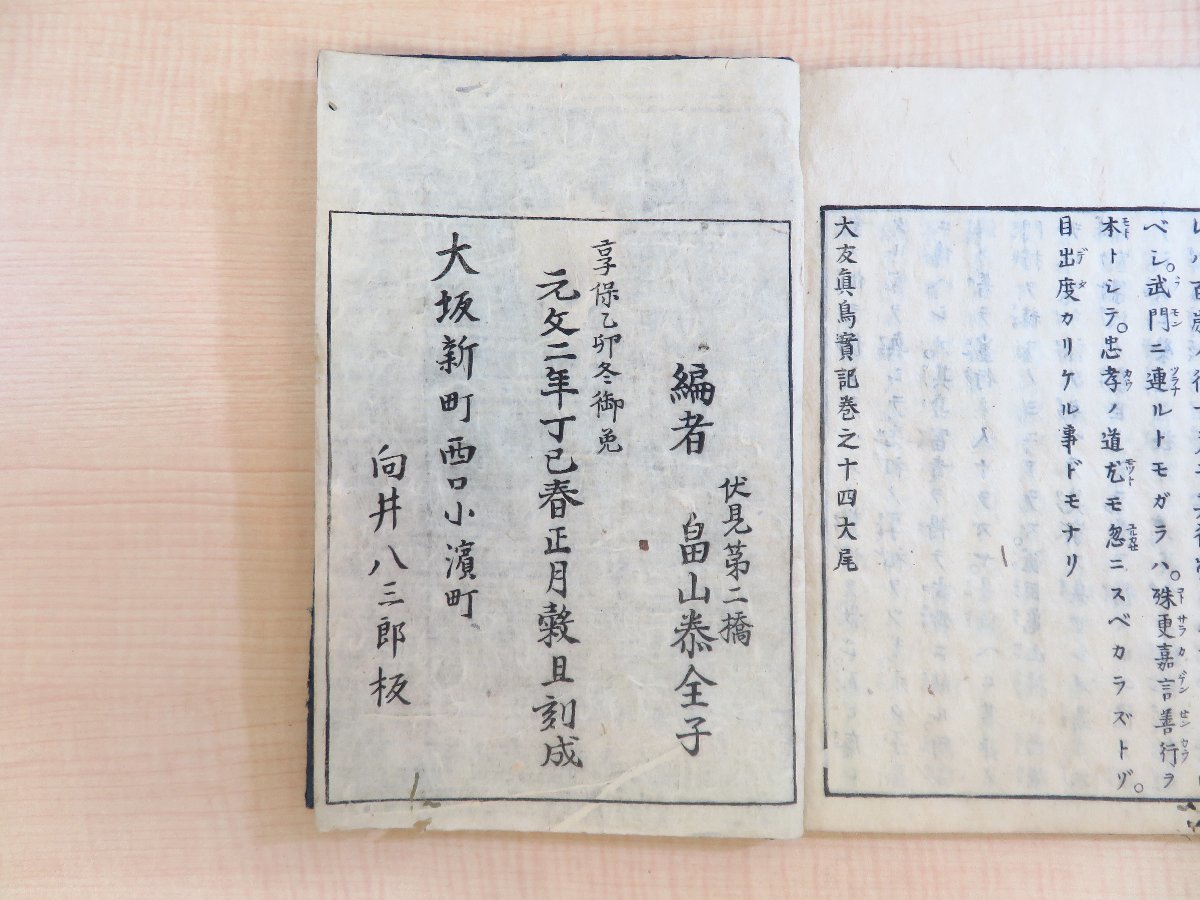 ベシ。武門ニ連ルトモガラハ。殊更嘉言善行ヲ
本トシテ。忠孝ノ道尤モ忽ニスベカラズトゾ。
目出度カリケル事ドモナリ
大友眞鳥實記巻之十四大尾
伏見第二橋
編者 畠山泰全子
享保乙卯冬御免
元文二年丁巳春正月穀旦刻成
大坂新町西口小濱町
向井八三郎板